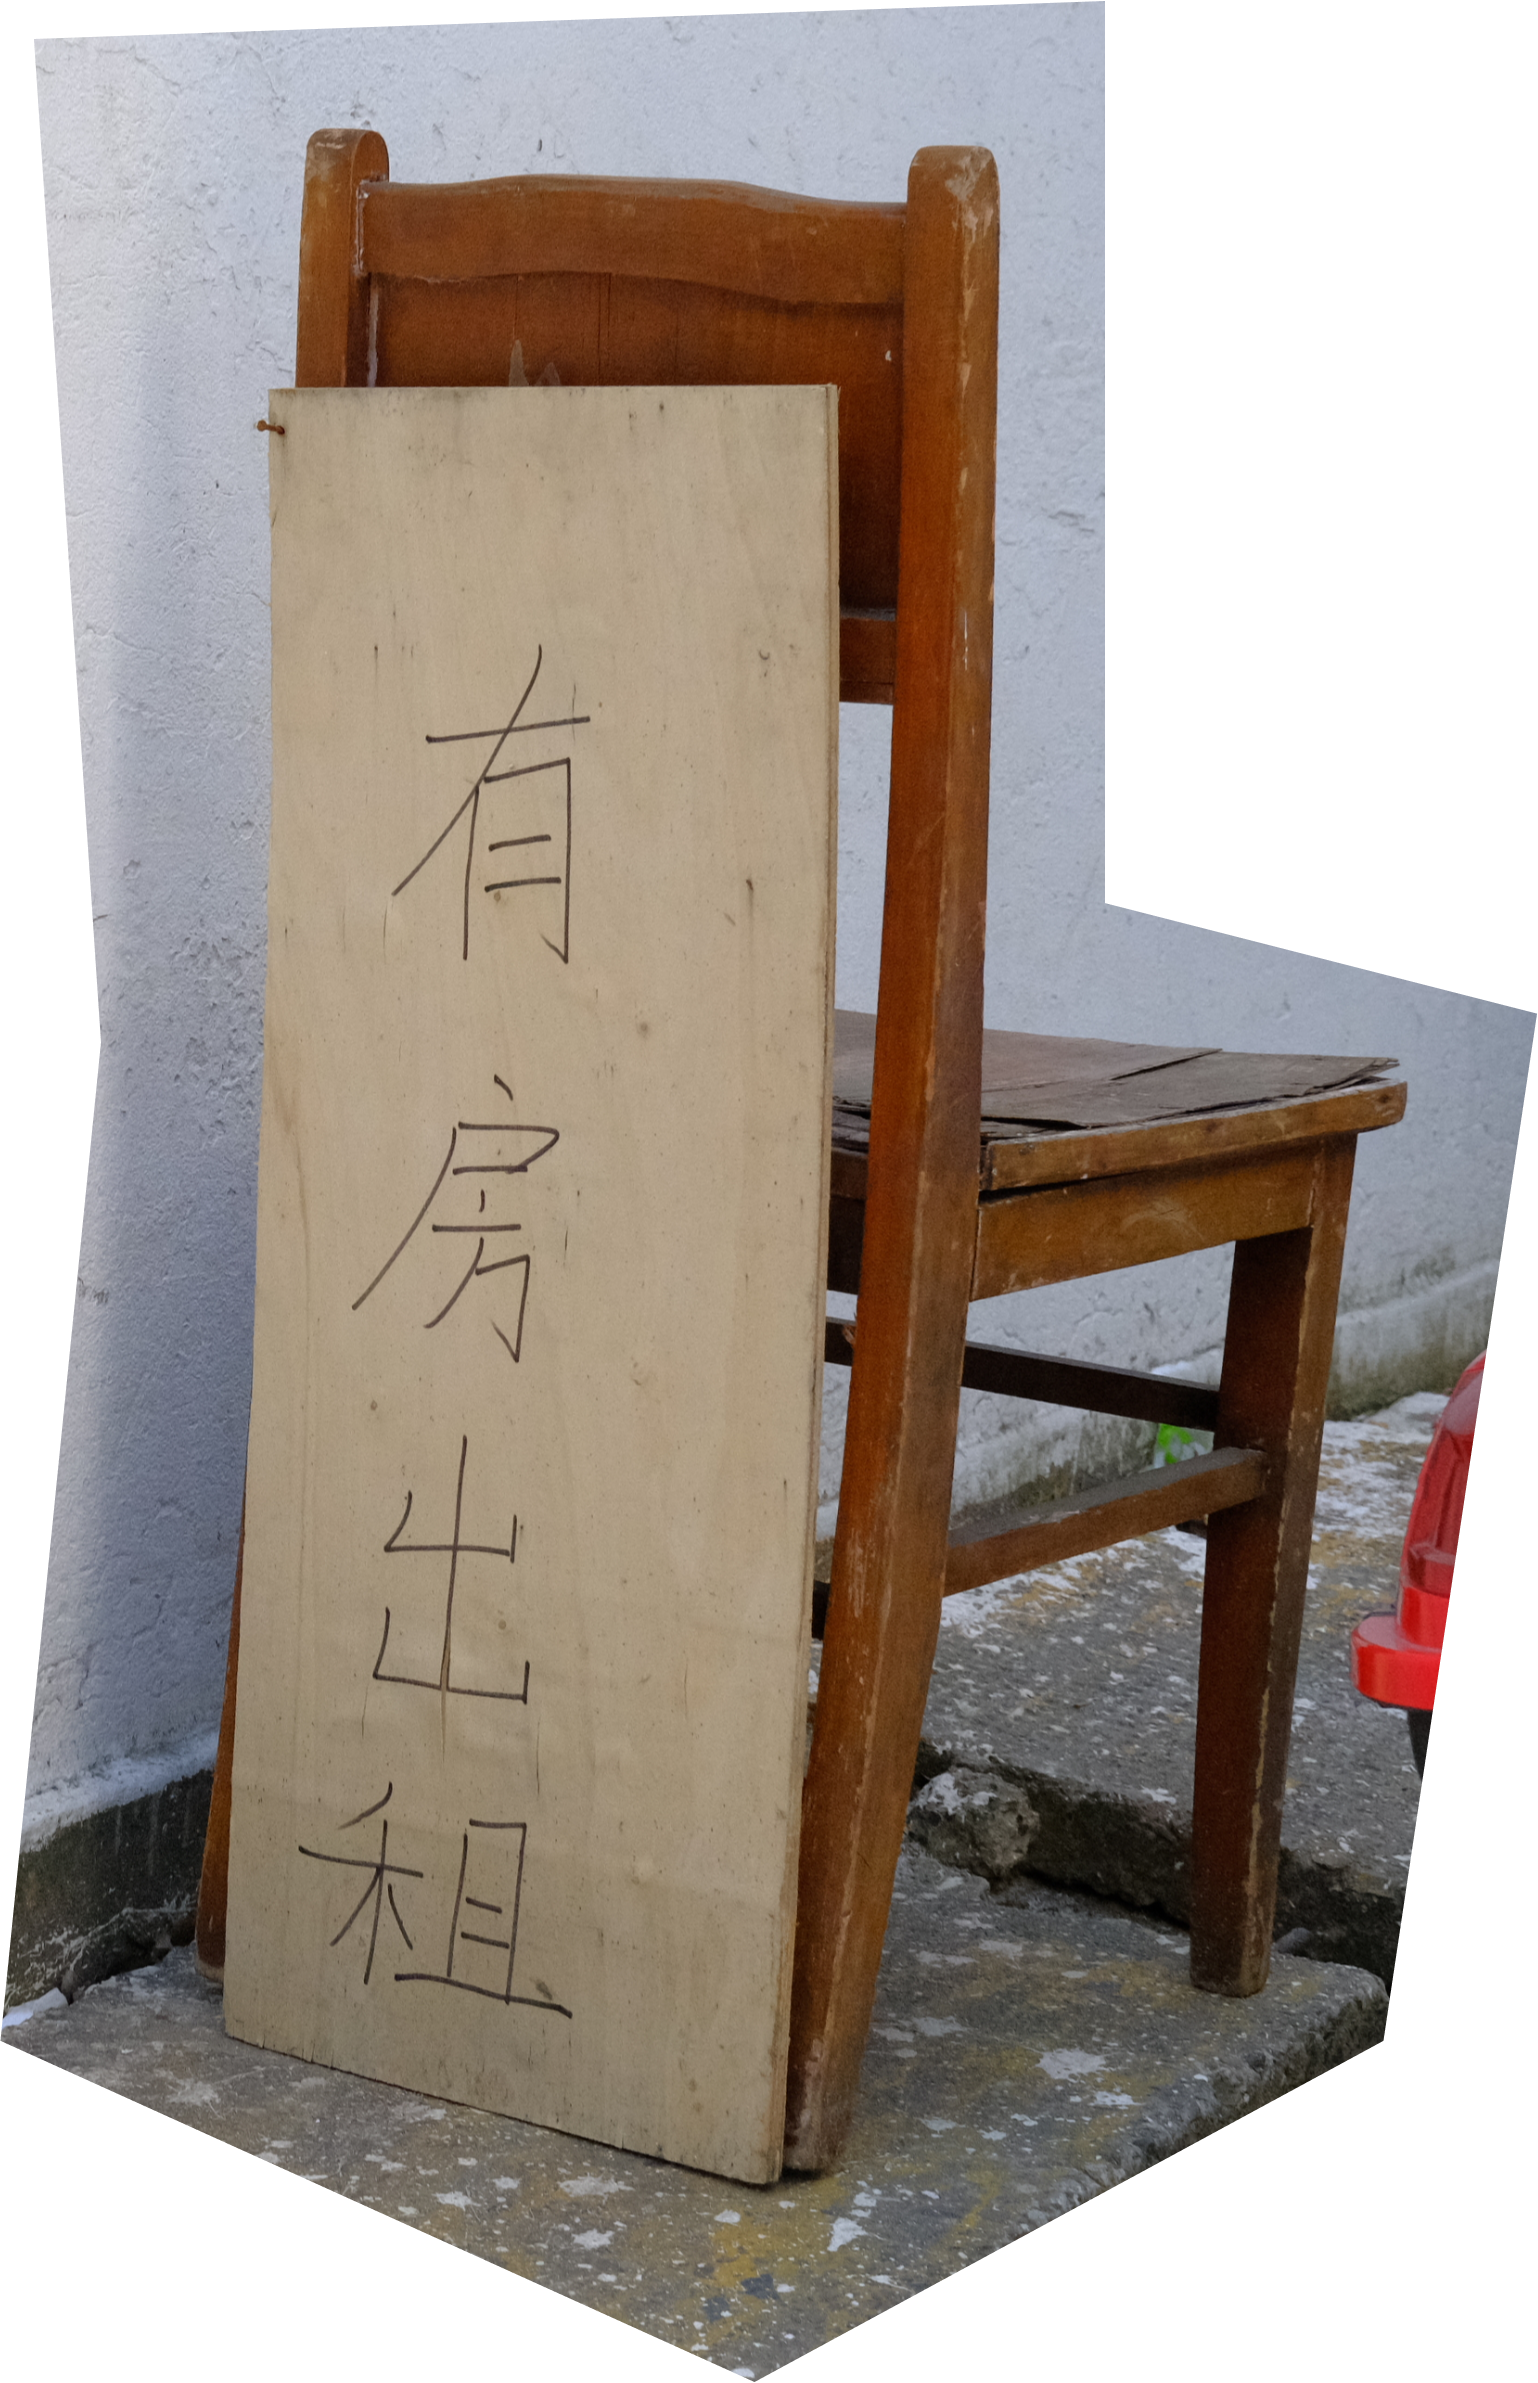 有房出租